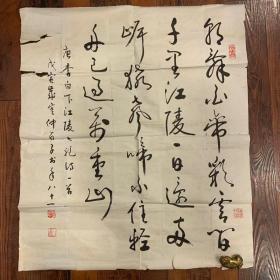 朝辞白帝彩云间
千里江陵一日还两
岸猿声啼不住轻
舟已过万重山
唐李白下江陵一首
戊寅
书年八十一